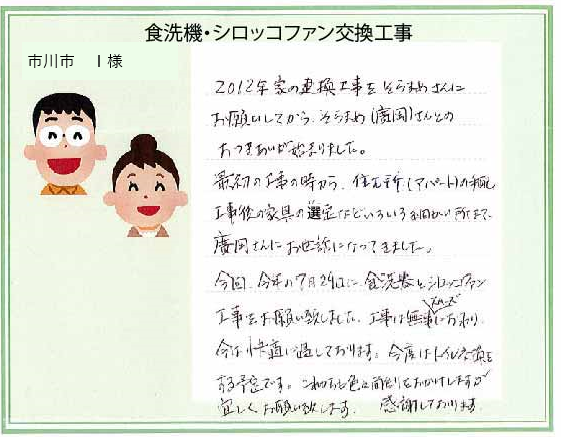 食洗機・シロッコファン交換工事
市川市　I様
2012年家の建換工事をそらまめさんに
お願いしてから、そらまめ(廣岡)さんとの
おつきあいが始まりました。
最初の工事の時から、(アパート)の
工事後の家具の選定などいろいろ細かい所まで、
廣岡さんにお世話になってきました。
今回、今年の7月29日に食洗器とシロッコファン
工事をお願い致しました。工事は無事スムーズに終わり、
今は快適に過しております。今度はトイレ交換を
する予定です。これからも色々面倒をおかけしますが
宜しくお願い致します。感謝しております。